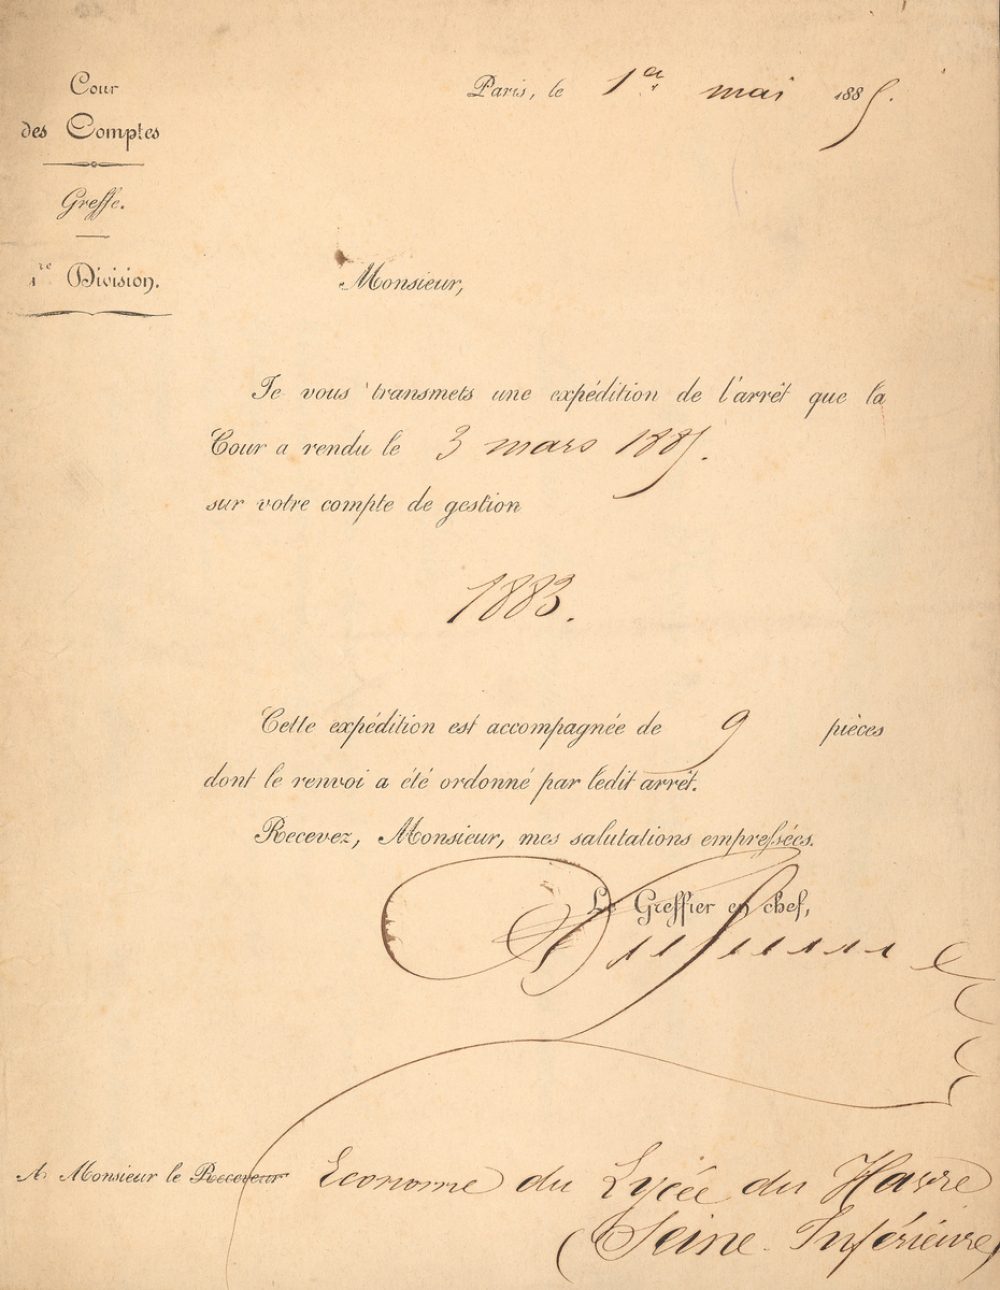 Cour
des Comptes
Greffe.
1re Division.
Paris, le 1er mai 1885.
Monsieur,
Je vous transmets une expédition de l'arrêt que la
Cour a rendu le 3 mars 1885.
sur votre compte de gestion
1883.
Cette expédition est accompagnée de 9 pièces
dont le renvoi a été ordonné par ledit arrêt.
Recevez, Monsieur, mes salutations empressées.
Le Greffier en chef,
A Monsieur le Receveur Econome du Lycée du Havre
(Seine-Inférieure)